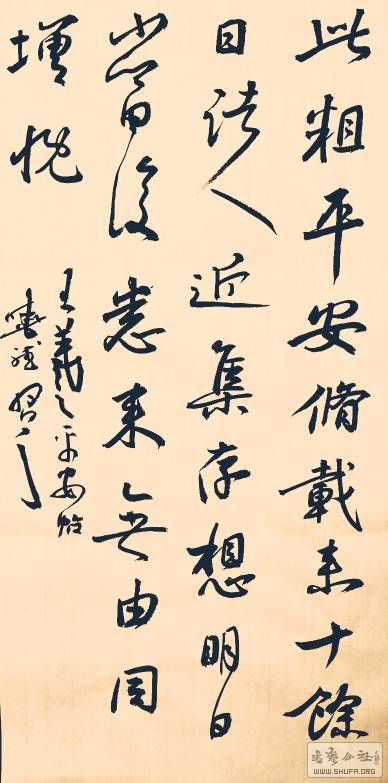 此粗平安脩載来十餘
日諸人近集存想明日
當復悉来無由同
增慨
王羲之平安帖
書藝公社
WWW.SHUFA.ORG